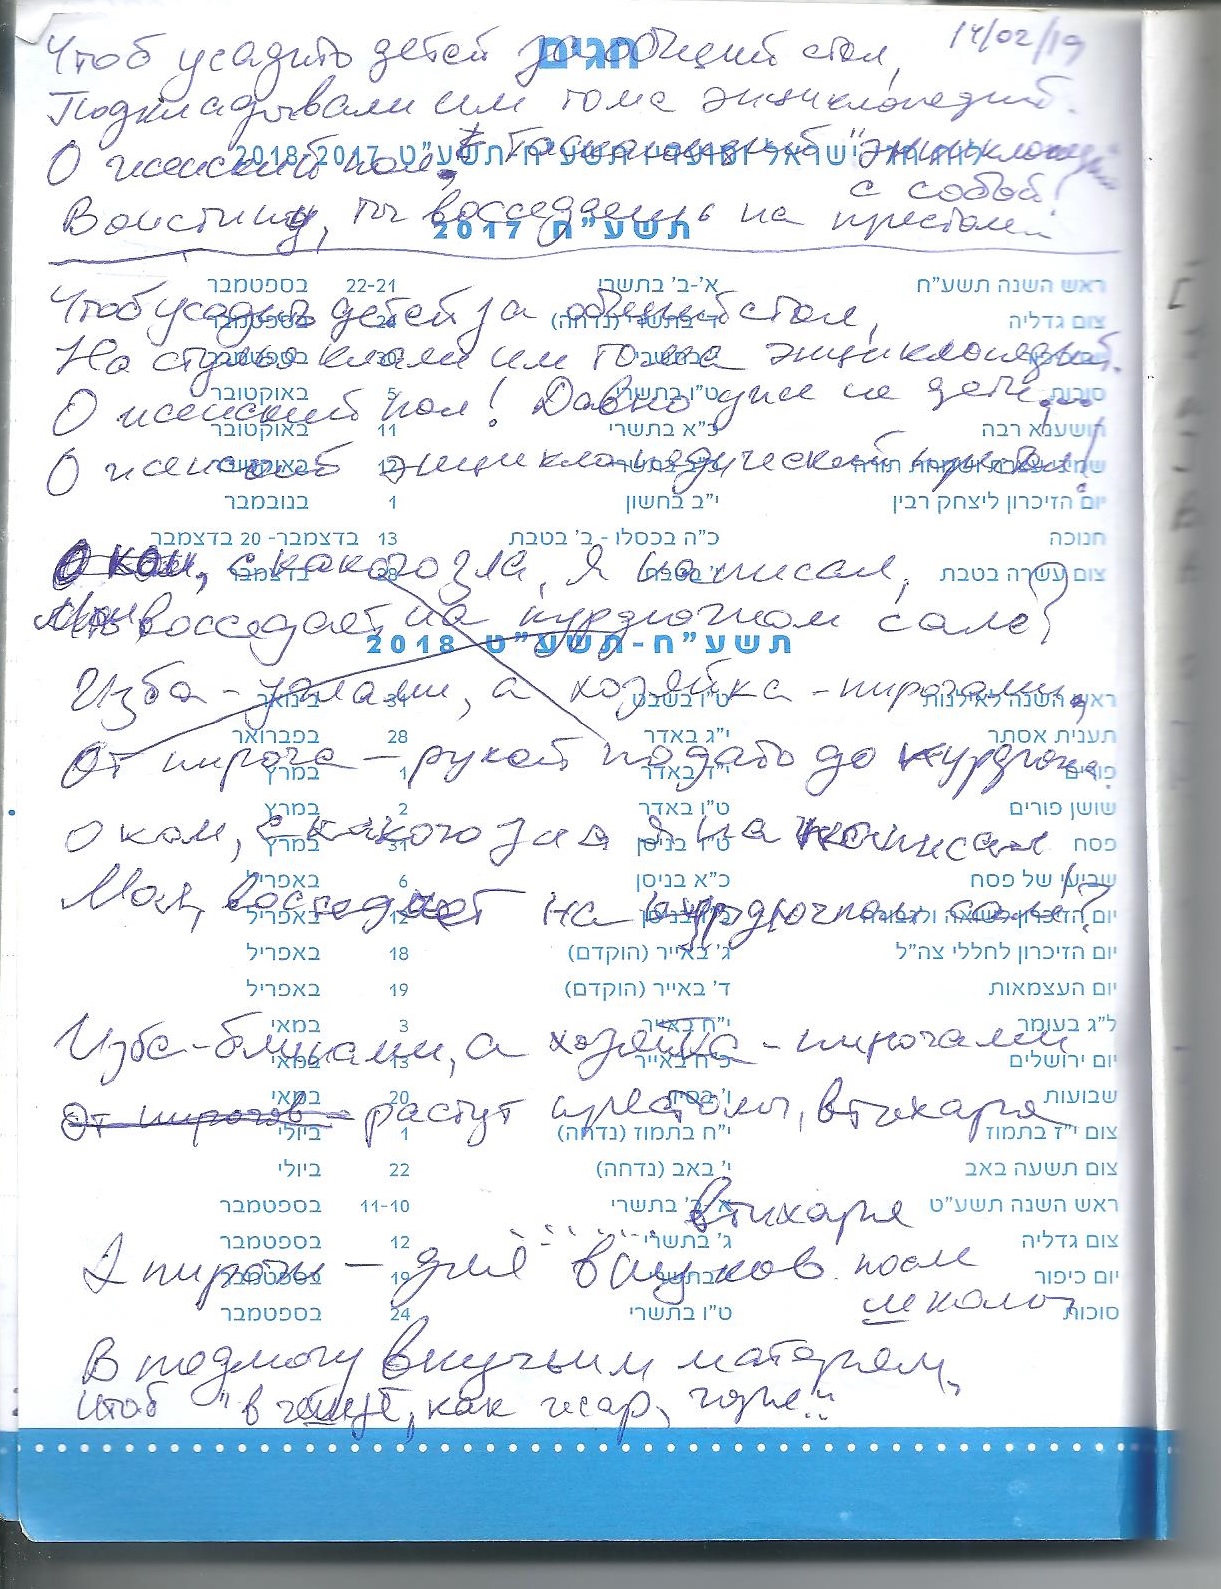 14/02/19
חגים
Чтоб усадить детей за общий стол,
Подкладывали им тома энциклопедий.
2018-2017
О женский пол, "энциклопедий
с собой!
Воистину, ты восседаешь на престоле
תשע"ח 2017
ראש השנה תשע"ח א'-ב' בתשרי 22-21 בספטמבר
Чтоб усадить детей за общий стол,
צום גדליה ד' בתשרי (נדחה) 24 בספטמבר
На стулья клали им тома энциклопедий.
סוכות ט"ו בתשרי 5 באוקטובר
О женский пол! Давно уже не дети...
הושענא רבה כ"א בתשרי 11 באוקטובר
О женский энциклопедический престол!
יום הזיכרון ליצחק רבין י"ב בחשון 1 בנובמבר
חנוכה כ"ה בכסלו - ב' בטבת 13 בדצמבר- 20 בדצמבר
צום עשרה בטבת 28 בדצמבר
О ком, с какого зла, я написал,
Мол, восседает на курдючном сале?
תשע"ח-תשע"ט 2018
Изба - углами, а хозяйка - пирогами,
ראש השנה לאילנות ט"ו בשבט 31 בינואר
תענית אסתר י"ג באדר 28 בפברואר
От пирога - рукой подать до курдюка.
פורים י"ד באדר 1 במרץ
שושן פורים ט"ו באדר 2 במרץ
О ком, с какого зла я написал
פסח ט"ו בניסן 31 במרץ
שביעי של פסח כ"א בניסן 6 באפריל
Мол, восседает на курдючном сале!?
יום הזיכרון לשואה ולגבורה 12 באפריל
יום הזיכרון לחללי צה"ל ג' באייר (הוקדם) 18 באפריל
יום העצמאות ד' באייר (הוקדם) 19 באפריל
ל"ג בעומר י"ח באייר 3 במאי
Изба - блинами, а хозяйка - пирогами
יום ירושלים כ"ח באייר 13 במאי
שבועות ו' בסיון 20 במאי
От пирогов - растут престолы, втихаря
צום י"ז בתמוז י"ח בתמוז (נדחה) 1 ביולי
צום תשעה באב י' באב (נדחה) 22 ביולי
ראש השנה תשע"ט א'-ב' בתשרי 11-10 בספטמבר
втихаря
צום גדליה ג' בתשרי 12 בספטמבר
А пироги - для внуков после
יום כיפור 19 בספטמבר
школы
סוכות ט"ו בתשרי 24 בספטמבר
В подмогу внучьим матерям,
Чтоб "в как жар, горя"..